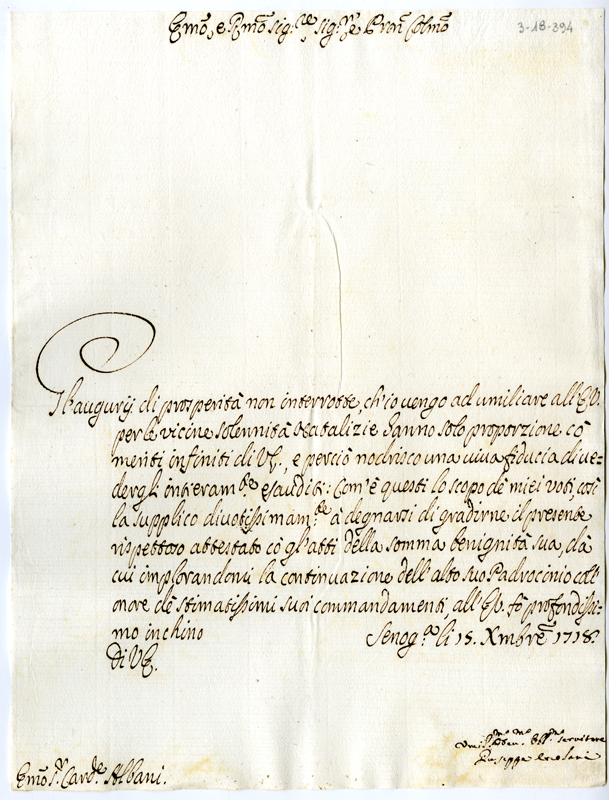 Emo, e Rmo sig.re sig.re e Pron Colmo
3-18-394
Gl'augurij di prosperità non interrotte, ch'io vengo ad umiliare all'E.V.
per le vicine solennità Natalizie hanno solo proporzione cò
meriti infiniti di V.E., e perciò nodrisco una viva fiducia di ve=
dergli interam.te esauditi: Com'è questi lo scopo de miei voti, così
la supplico divotissimam.te à degnarsi di gradirne il presente
rispettoso attestato cò gl'atti della somma benignità sua, dà
cui implorandomi la continuazione dell'alto suo Padrocinio coll'
onore de stimatissimi suoi commandamenti, all'E.V. fò profondissi=
mo inchino
Senog.a li 15. Xmbre 1718.
Di V.E.
servitore
Giuseppe
Emo S.r Card.e Albani.